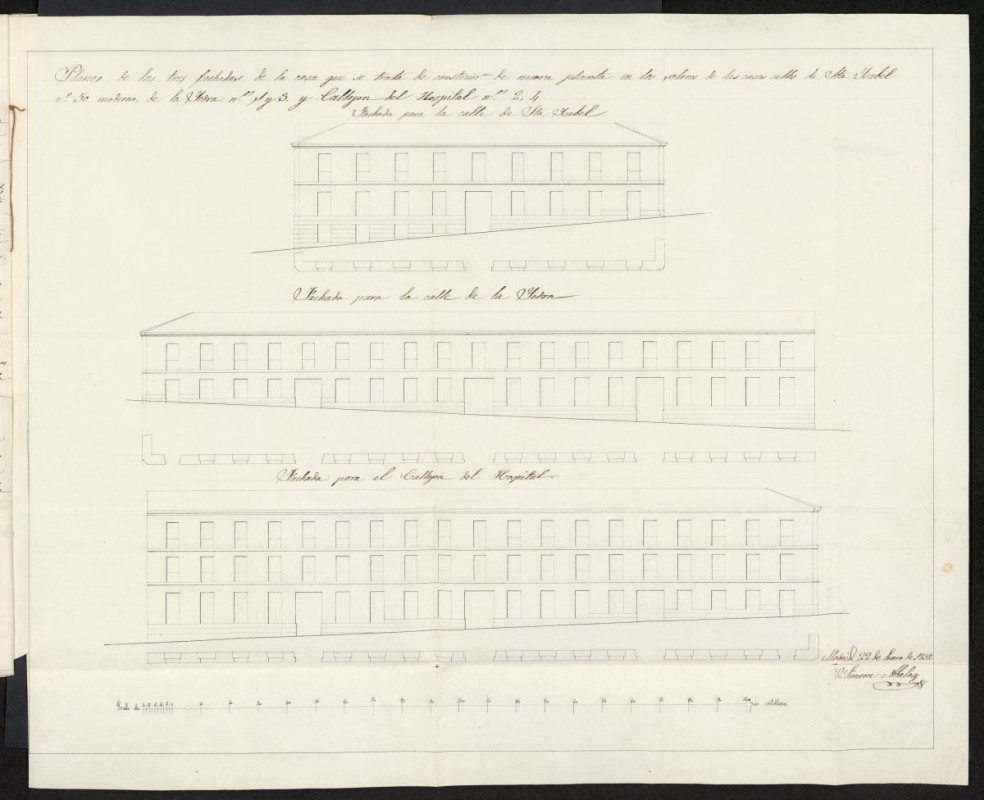 Planos de las tres fachadas de la casa que se trata de construir de nueva planta en los solares de las casas calle de Sta Isabel
nº 50 moderno, de la Yedra nos 1 y 3. y Callejon del Hospital nos 2, 4
Fachada para la calle de Sta Isabel
Fachada para la calle de la Yedra
Fachada para el Callejon del Hospital
Madrid 22 de Enero de
Simeon
Escala de pies castellanos